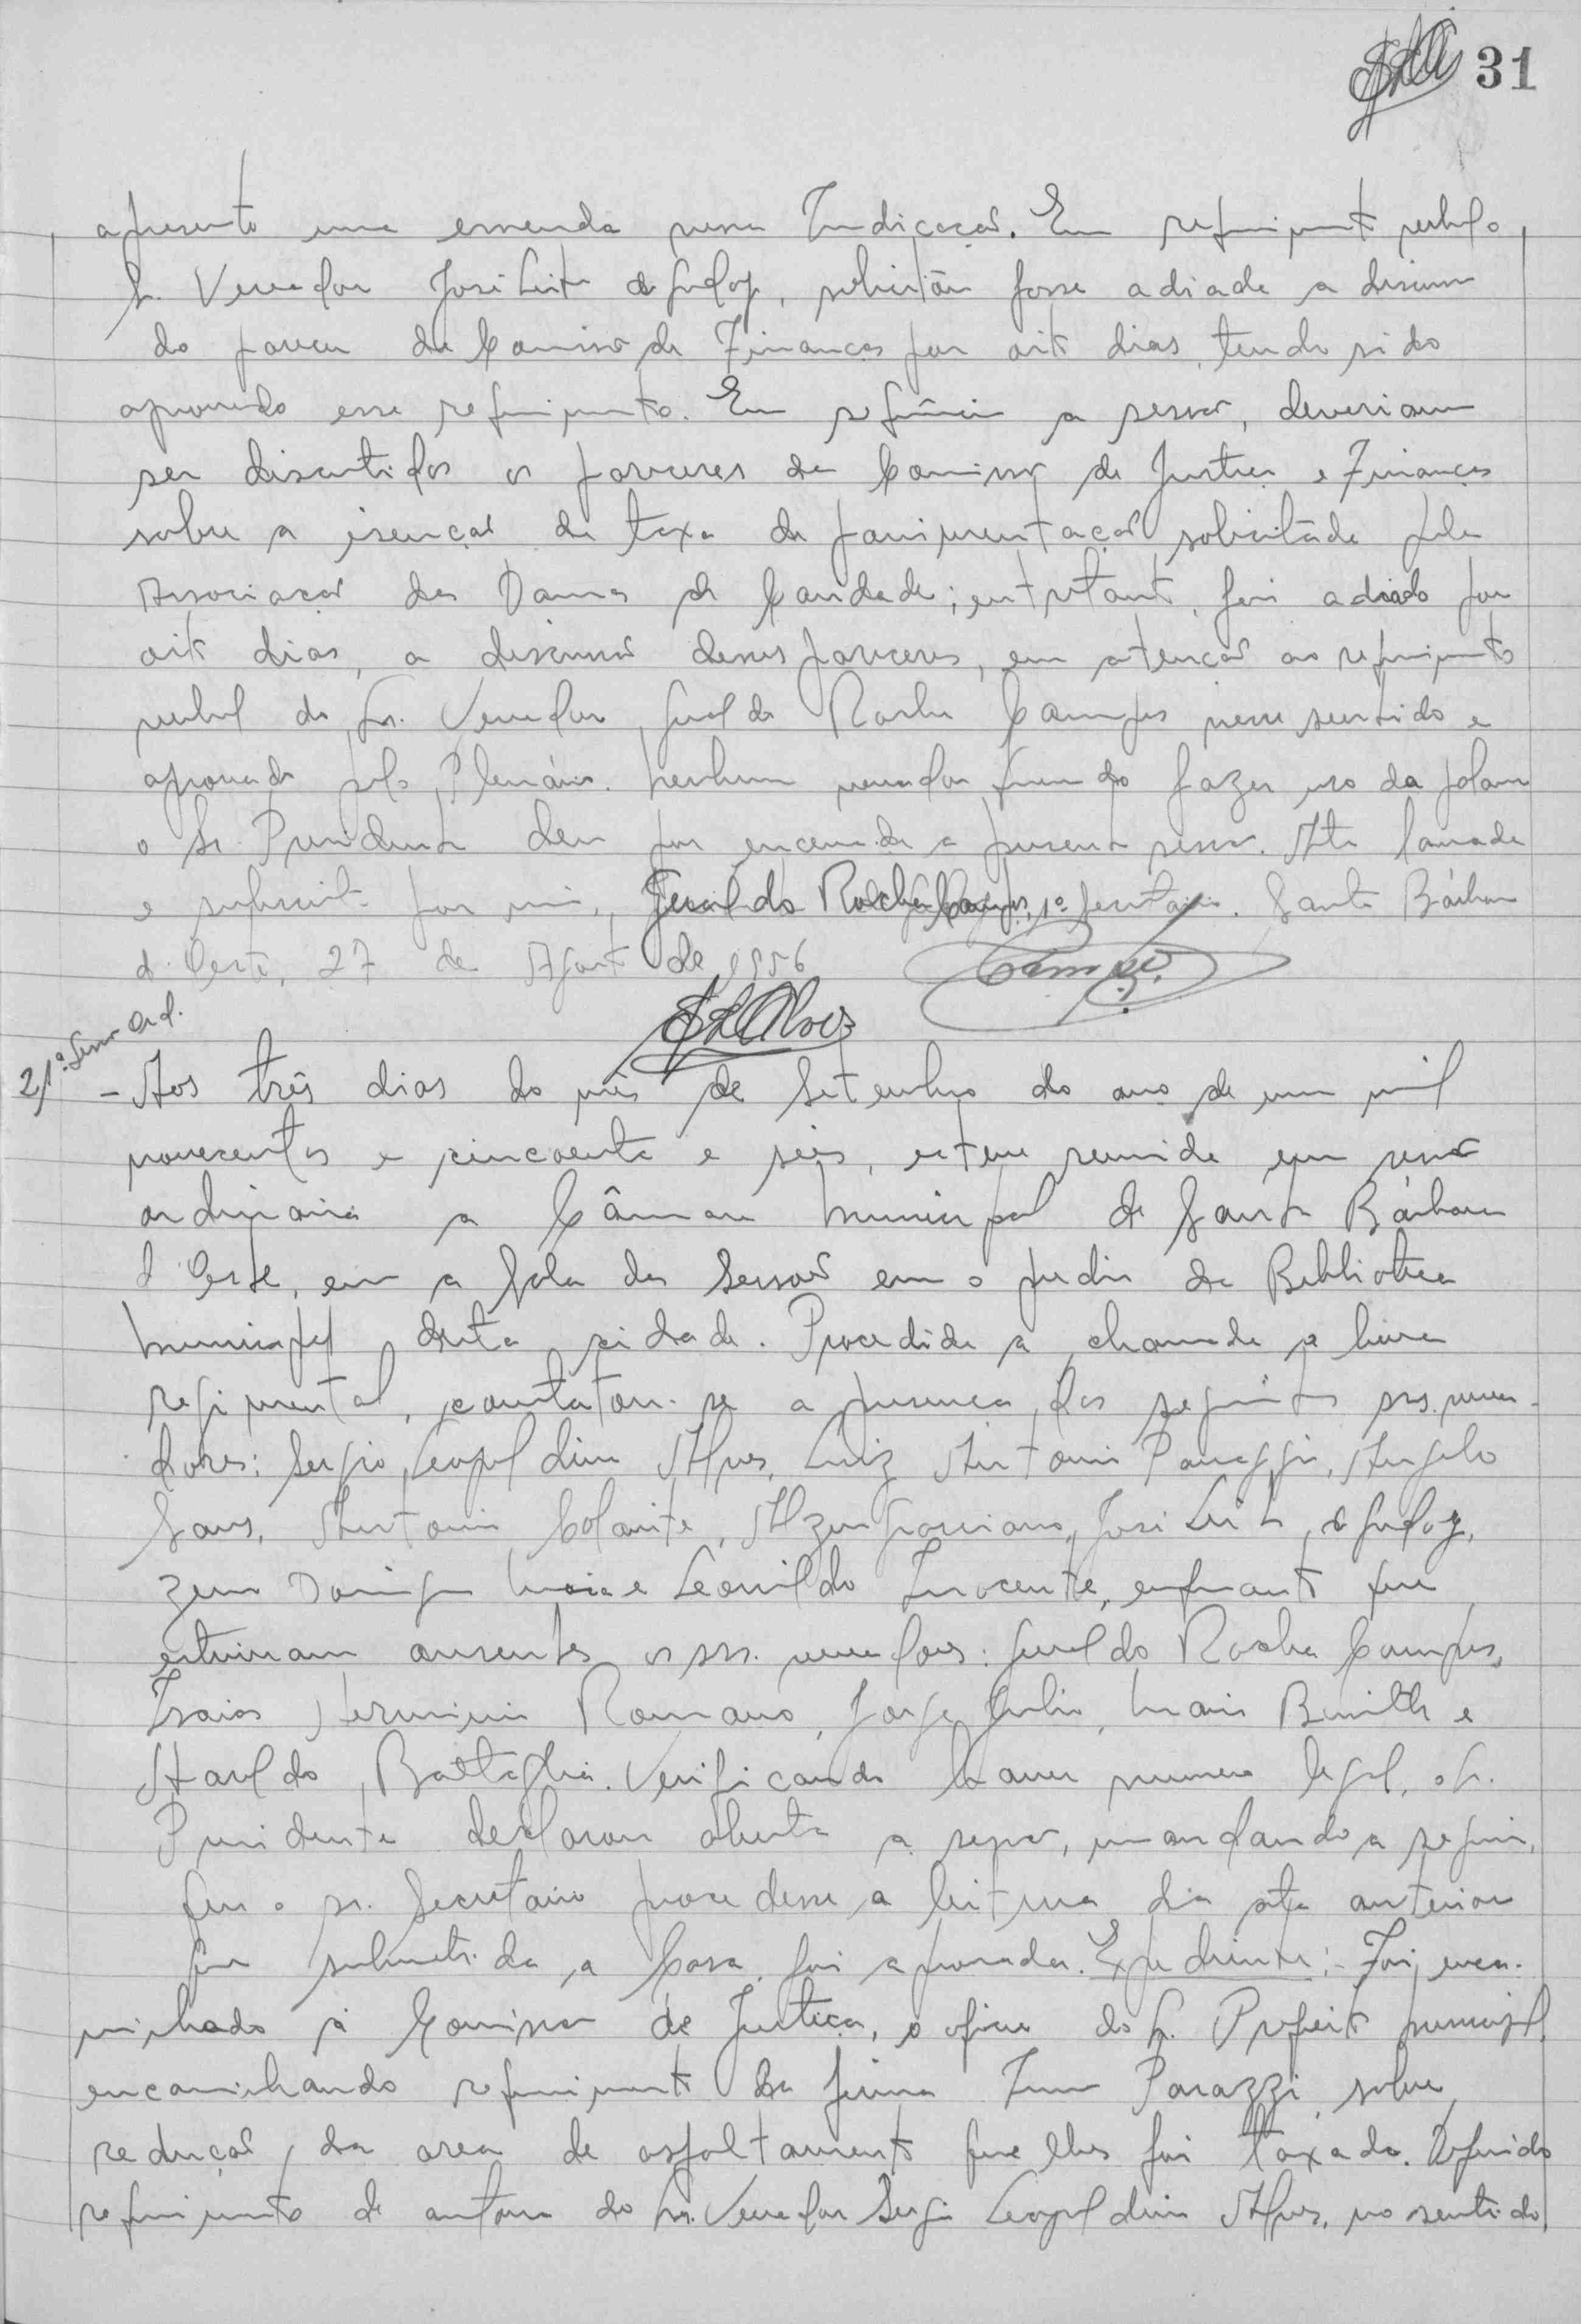 31
apresento uma emenda nessa Indicação. Em requerimento verbal o
Sr. Vereador José Leite de Godoy, solicitou fosse adiada a discussão
do parecer da Comissão de Finanças por oito dias, tendo sido
aprovado esse requerimento. Em sequência a sessão, deveriam
ser discutidos os pareceres da Comissão de Justiça e Finanças
sobre a isenção da taxa de pavimentação solicitada pela
Associação das Damas de Caridade; entretanto, foi adiado por
oito dias, a discussão desses pareceres, em atenção ao requerimento
verbal do Sr. Vereador Geraldo Rocha Campos nesse sentido e
aprovado pelo Plenário. Nenhum vereador querendo fazer uso da palavra
o Sr. Presidente deu por encerrada a presente sessão. Ata lavrada
e subscrita por mim, Geraldo Rocha Campos, 1º Secretário. Santa Bárbara
d'Oeste, 27 de Agosto de 1956
Campos.
SLAlves
21ª. Sessão Ord.
- Aos três dias do mês de Setembro do ano de um mil
novecentos e cincoenta e seis, esteve reunida em sessão
ordinaria a Câmara Municipal de Santa Bárbara
d'Oeste, em a Sala das Sessões em o predio da Biblioteca
Municipal desta cidade. Procedida a chamada a hora
regimental, constatou-se a presença dos seguintes srs. verea-
dores: Sergio Leopoldino Alves, Luiz Antonio Panaggio, Angelo
Sans, Antonio Colanite, Graciano, José Leite de Godoy,
Domingos Maia e Leonildo Inocente, enquanto que
estiveram ausentes os srs. vereadores: Geraldo Rocha Campos,
Isaias Herminio Romano, Jorge Julio, Mario e
Haroldo Battaglia. Verificando haver numero legal, o Sr.
Presidente declarou aberta a sessão, mandando a seguir,
que o sr. Secretario procedesse a leitura da ata anterior
que submetida a Casa, foi aprovada. Expediente:- Foi enca-
minhado à Comissão de Justiça, o oficio do Sr. Prefeito Municipal,
encaminhando requerimento da firma Parazzi sobre
redução da area de asfaltamento que lhes foi taxada. Deferido
requerimento de autoria do Sr. Vereador Sergio Leopoldino Alves, no sentido